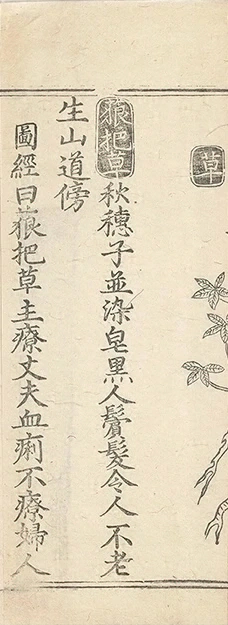 草
狼把草秋穗子並染皂黑人鬢髮令人不老
生山道傍
圖經曰狼把草主療丈夫血痢不療婦人